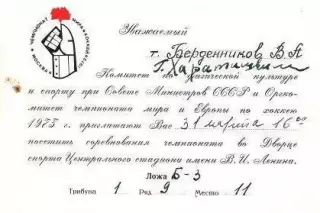 Уважаемый
т. Берденников В.А
Г. Тараташкин
Комитет по физической культуре
и спорту при Совете Министров СССР и Оргко-
митет чемпионата мира и Европы по хоккею
1973 приглашают Вас 31 марта 16 00
посетить соревнования чемпионата во Дворце
спорта Центрального стадиона имени В. И. Ленина.
Ложа Б-3
Трибуна 1 Ряд 9 Место 11